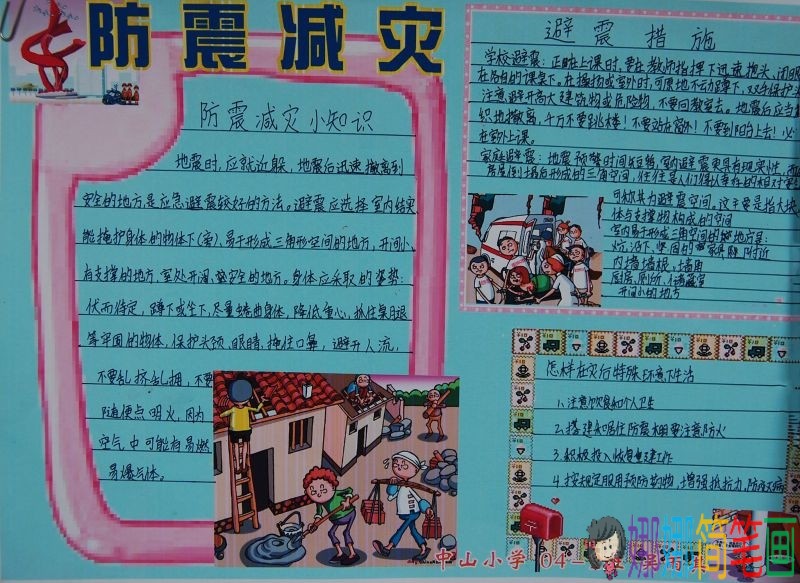 防震减灾
防震减灾小知识
地震时,应就近躲,地震后迅速撤离到
安全的地方是应急避震较好的方法。避震应选择室内结实
能掩护身体的物体下(旁)、易于形成三角形空间的地方,开间小、
有支撑的地方,室外开阔、安全的地方。身体应采取的姿势:
伏而待定,蹲下或坐下,尽量蜷曲身体,降低重心,抓住桌腿
等牢固的物体,保护头颈、眼睛,掩住口鼻,避开人流,
不要乱挤乱拥,不要
随便点明火,因为
空气中可能有易燃
易爆气体。
避震措施
学校避震:正在上课时,要在教师指挥下迅速抱头、闭眼
在各自的课桌下。在操场或室外时,可原地不动蹲下,双手保护头
注意避开高大建筑物或危险物,不要回教室去。地震后应当
织地撤离,千万不要跳楼!不要站在窗外!不要到阳台上去!必
在室外上课。
家庭避震:地震预警时间短暂,室内避震更具有现实性,而
房屋倒塌后形成的三角空间,往往是人们得以幸存的相对
可称其为避震空间,这主要是指大块
体与支撑物构成的空间
室内易于形成三角空间的地方是:
炕沿下、坚固的家具附近
内墙墙根、墙角
厨房、厕所、储藏室
开间小的地方
怎样在灾后特殊环境下生活
1.注意饮食和个人卫生
2.搭建和居住防震棚要注意防火
3.积极投入恢复重建工作
4.按规定服用预防药物,增强抵抗力,防疫灭病
中山小学 04-
娜娜简笔画